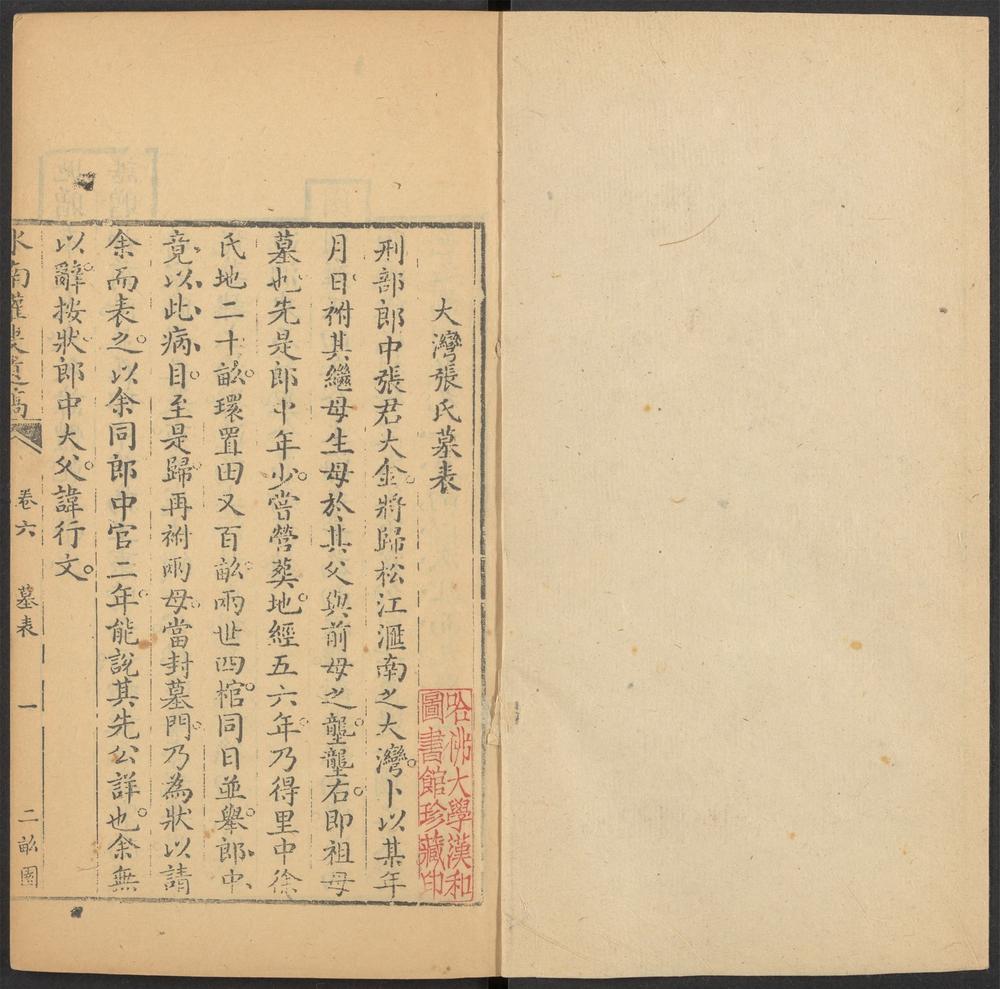 大灣張氏墓表
刑部郎中張君大金。將歸松江滙南之大灣。卜以某年
月日。祔其繼母生母於其父與前母之壟。壟右。即祖母
墓也。先是郎中年少。嘗營葬地。經五六年。乃得里中徐
氏地二十畝。環置田又百畝。兩世四棺。同日並舉。郎中
竟以此病目。至是歸。再祔兩母。當封墓門。乃為狀以請
余而表之。以余同郎中官二年。能說其先公詳也。余無
以辭。按狀。郎中大父。諱行文。
水南灌叟遺稿
卷六
墓表
一
二畝園
哈佛大學漢和
圖書館珍藏印